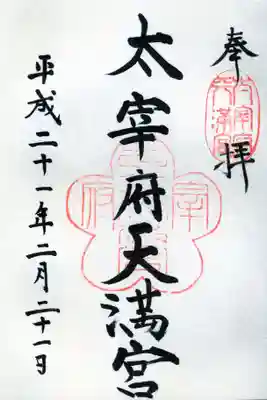 奉拝
太宰府天満宮
平成二十一年二月二十一日